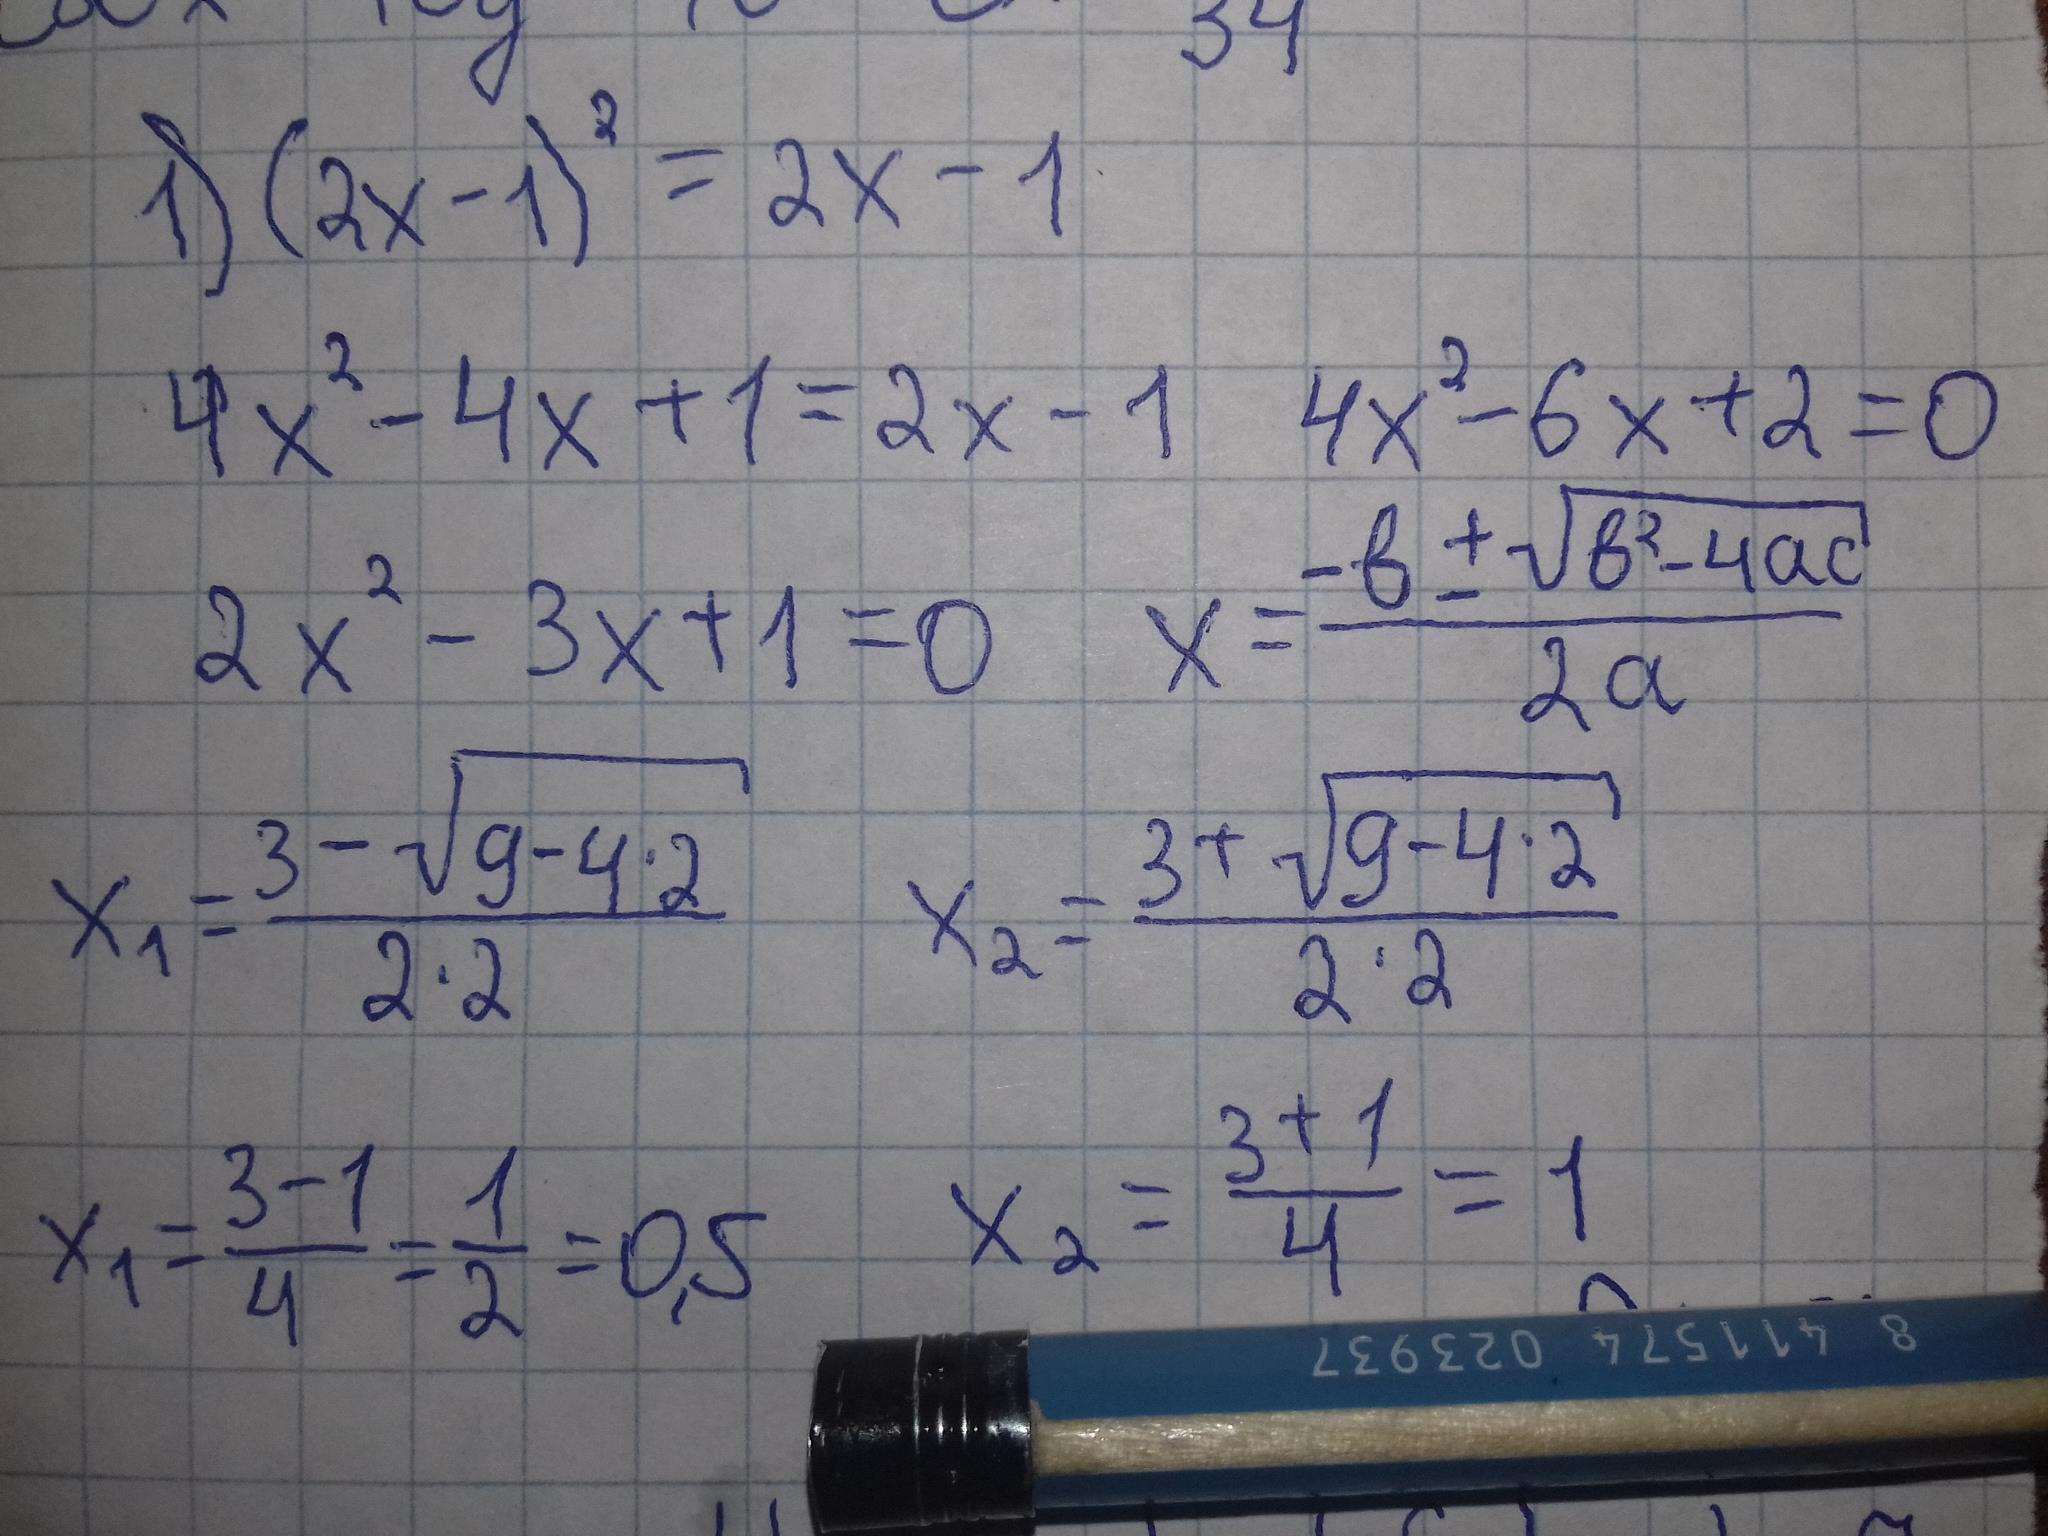 34
1) (2x-1)² = 2x-1
4x²-4x+1=2x-1 4x²-6x+2=0
2x²-3x+1=0 x=(-в±√(в²-4ac))/(2a)
x₁=(3-√(9-4·2))/(2·2) x₂=(3+√(9-4·2))/(2·2)
x₁=(3-1)/4=1/2=0,5 x₂=(3+1)/4=1
8 411574 023937